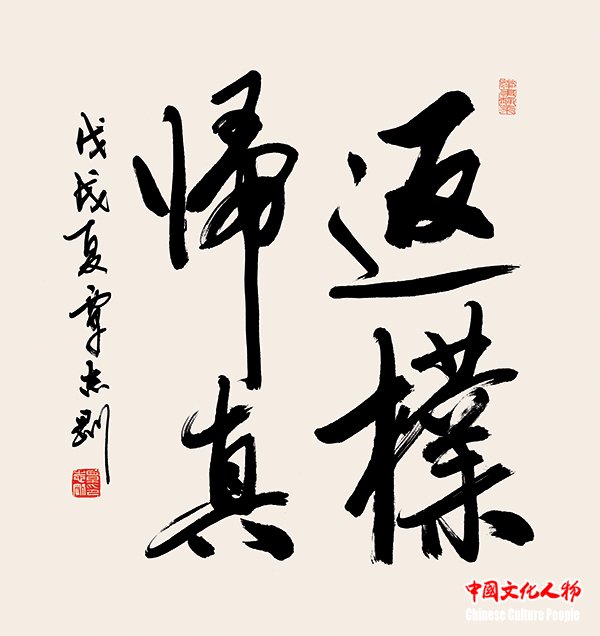 返樸
帰真
戊戌夏覃志剛
中國文化人物
Chinese Culture People